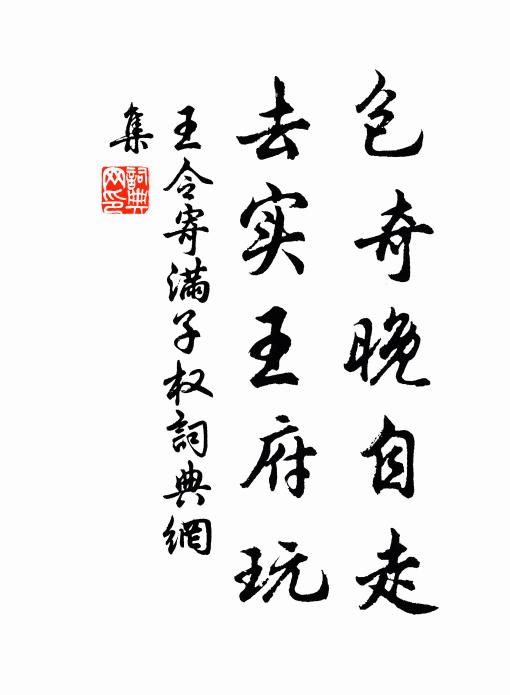 包奇晚自走
去实王府玩
王令寄满子权詞典網
集
詞典
网印